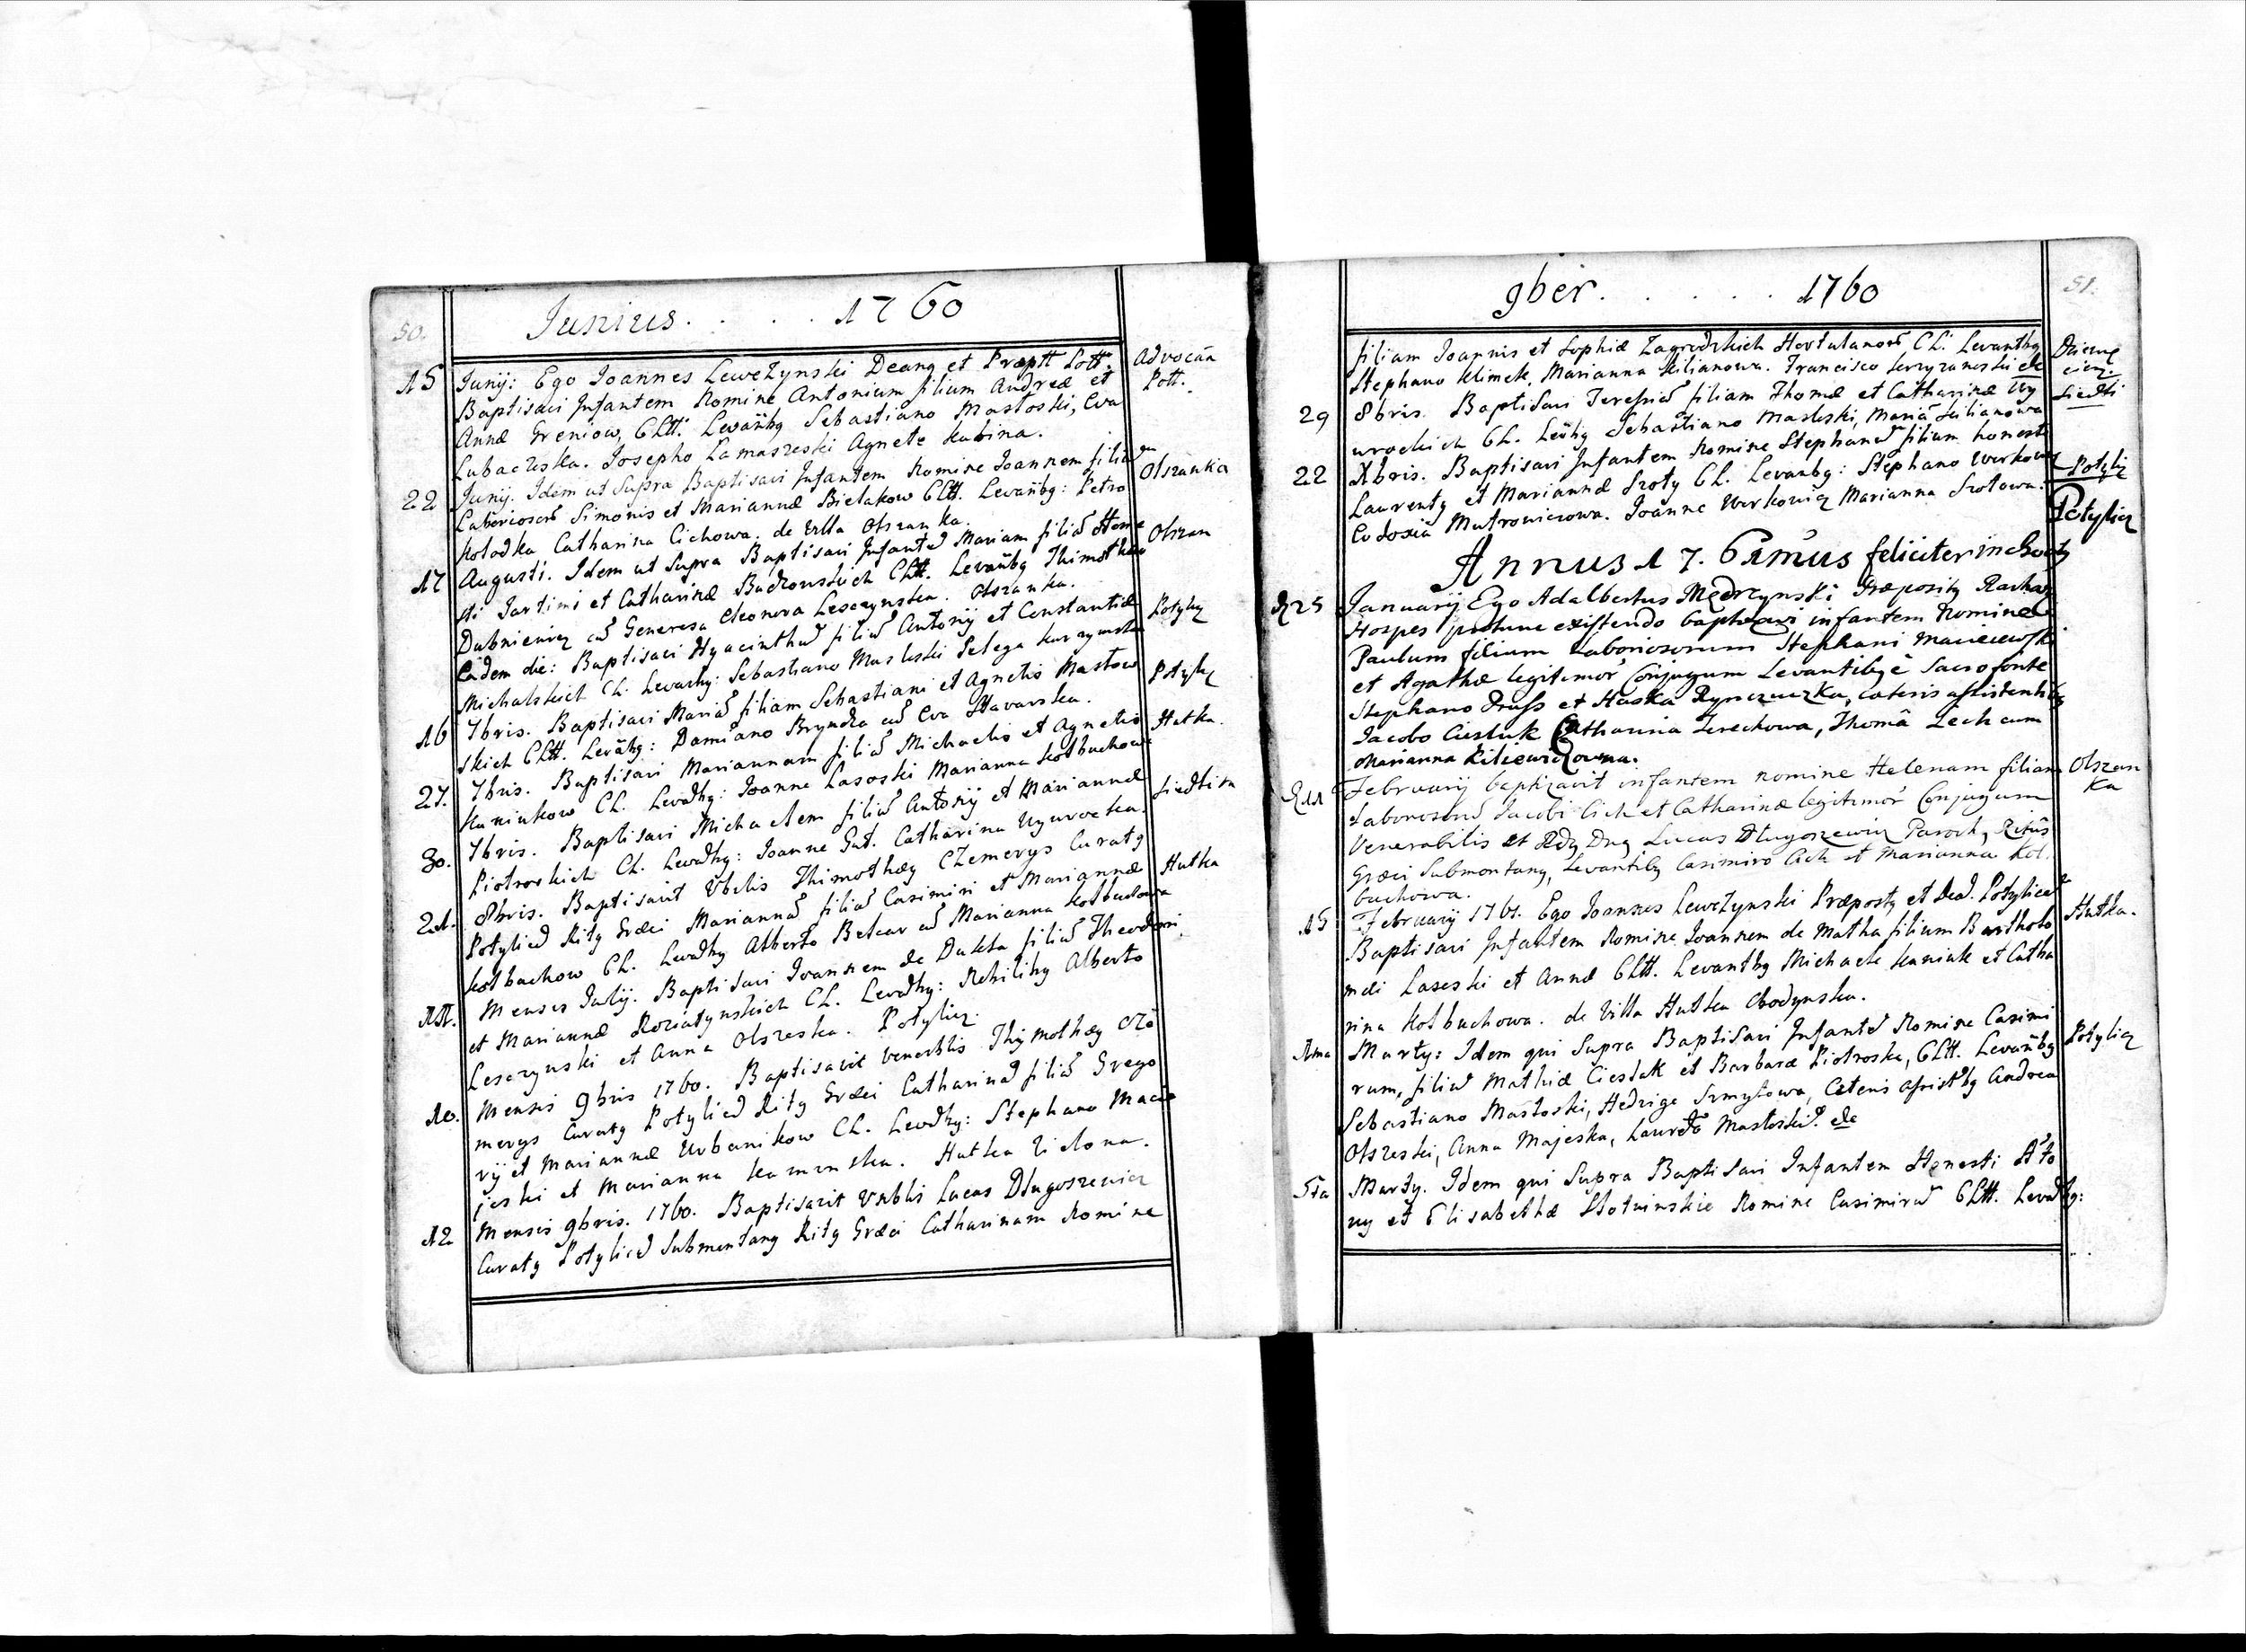 50.
Junius. . . . 1760
15 Junij: Ego Joannes Lewczynski Decang et Præptt Pott:
Advocān
Pott.
Baptisavi Infantem Nomine Antonium filium Andreæ et
Annæ Greniow, CLtt. Levāntbg Sebastiano Mastoski, Eva
Lubaczska. Josepho Lamaszeski Agnete Kubina.
22 Junij. Idem ut Supra Baptisavi Infantem Nomine Joannem filiū
Olszanka
Laboriosorū Simonis et Mariannæ Bielakow CLtt. Levāntbg: Petro
Kolodka Catharina Cichowa. de Villa Olszanka.
17 Augusti. Idem ut Supra Baptisavi Infantē Mariam filiā Hone
Olszan
sti Jartimi et Catharinæ Budzowskich CLtt. Levāntbg Thimotheo
Dubniewicz cū Generosa Eleonora Lesczynska. Olszanka.
Eādem die: Baptisavi Hyacinthū filiū Antonij et Constantiæ
Potylicz
Michalskich CL. Levatbg: Sebastiano Masleski Pelega Kurzymska
16 7bris. Baptisavi Mariā filiam Sebastiani et Agnetis Mastow
Potylicz
skich CLtt. Levātbg: Damiano Bryndza cū Eva Stavarska.
27. 7bris. Baptisavi Mariannam filiā Michaelis et Agnetis
Hutka.
Kaniukow CL. Levātbg: Joanne Lasoski Marianna Kolbuchowa
30. 7bris. Baptisavi Michaelem filiū Antonij et Mariannæ
Siedliska
Piotroskich CL. Levātbg: Joanne Gut. Catharina Ugurocka.
21. 8bris. Baptisavit Vbilis Thimothæg Czemerys Curatg
Hutka
Potylicē Ritg Græci Mariannā filiā Casimiri et Mariannæ
Kolbuchow CL. Levātbg Alberto Belcar cū Marianna Kolbuchowa
Mensis Julij. Baptisavi Joannem de Dukla filiū Theodori,
et Mariannæ Roziatynskich CL. Levātbg: Nobilibg Alberto
Lesczynski et Anna Olszeska. Potylicz.
10. Mensis 9bris 1760. Baptisavit Venerblis Thymothæg Cze
merys Curatg Potylicē Ritg Græci Catharinā filiā Grego
rij et Mariannæ Urbanikow CL. Levātbg: Stephano Macie
jeski et Marianna Kaminska. Hutka Zielona.
12 Mensis 9bris. 1760. Baptisavit Vnblis Lucas Dlugoszewicz
Curatg Potylicē Submontang Ritg Græci Catharinam Nomine
51.
9ber. . . . . . 1760
filiam Joannis et Sophiæ Zagrodzkich Hortulanorū CL. Levantbg
Stephano Klimek, Marianna Kilianowa. Francisco Krzyzanoski etc
29 8bris. Baptisavi Teresiā filiam Thomæ et Catharinæ Ug
Siedli
urockich CL. Levātbg Sebastiano Masleski, Mariā Kilianowa
22 Xbris. Baptisavi Infantem Nomine Stephanū filium honesti
Potylicz
Laurentg et Mariannæ Szoty CL. Levantbg: Stephano Werkowicz
Eudoxia Mutrowiczowa. Joanne Werkowicz Marianna Szotowa.
Potylicz
Annus 17.61mus feliciter inchoatg
25 Januarij Ego Adalbertus Mędrzynski Præpositg Rachag
Hospes protunc existendo baptizavi infantem Nomine
Paulum filium Laboriosorum Stephani Macieiewski
et Agathæ legitimor Conjugum Levantibg è sacro fonte
Stephano Druss et Haska Rynczuczka, cæteris assistentibg
Jacobo Ciesluk Catharina Terechowa, Thomâ Lech cum
Marianna Kiliewiczowna.
11 Februarij baptizavit infantem nomine Helenam filiam
Olszan
ka
Laboriosorū Jacobi Cich et Catharinæ legitimor Conjugum
Venerabilis et Rdg Dng Lucas Dlugoszewicz Paroch, Ritûs
Græci Submontang, Levantibg Casimiro Cich et Marianna Kol.
buchowa.
15 Februarij 1761. Ego Joannes Lewczynski Præpostg et Decā. Potylicen
Hutka.
Baptisavi Infantem Nomine Joannem de Matha filium Bartholo
mæi Laseski et Annæ CLtt. Levantbg Michaele Kaniuk et Catha
rina Kolbuchowa. de Villa Hutka Obodynska.
1ma Martij: Idem qui Supra Baptisavi Infantē Nomine Casimi
Potylicz
rum, filiū Mathiæ Cieslak et Barbaræ Piotroska, CLtt. Levāntbg
Sebastiano Mastoski, Hedvige Szmytowa, Cæteris assistbg Andrea
Olszeski, Anna Majeska, Laurēto Mastoski. etc
5ta Martij. Idem qui Supra Baptisavi Infantem Honesti Ātō
nij et Elisabethæ Slotwinskie Nomine Casimirū CLtt. Levātbg: